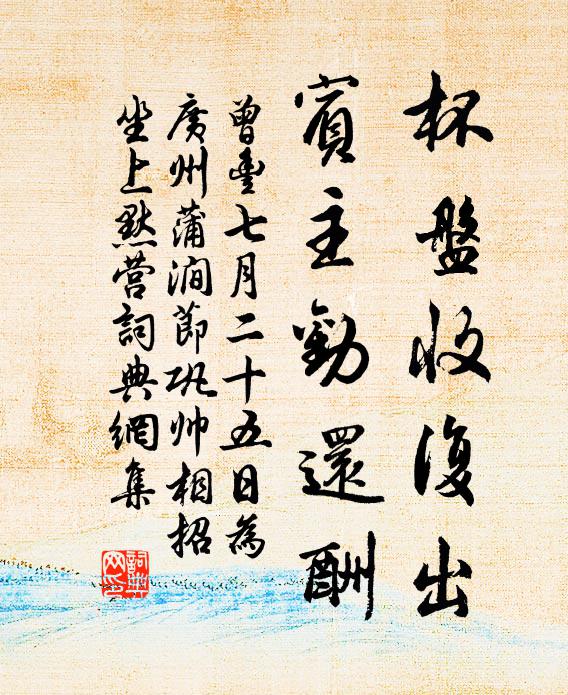 杯盤收復出
賓主勸還酬
曾豐七月二十五日為
廣州蒲澗節巩帅相招
坐上默営詞典網集
詞典
网